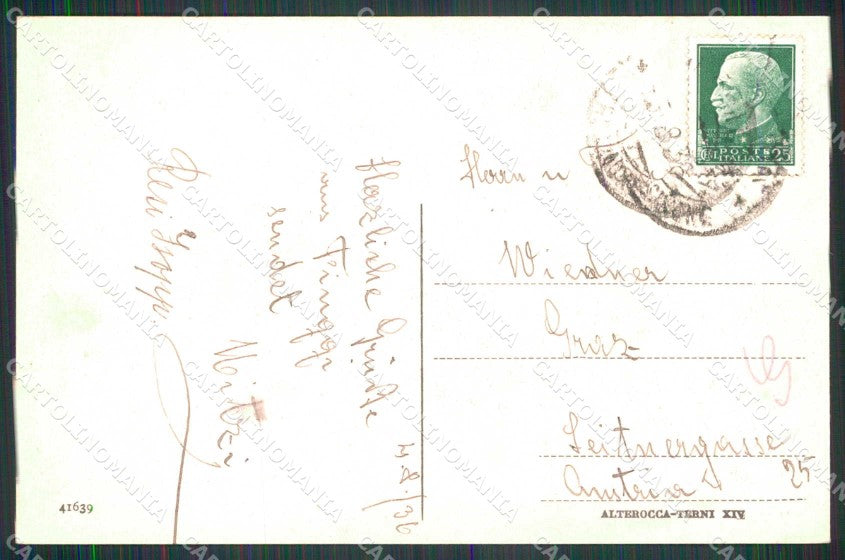 Herzliche Grüße 4.8/36
aus
sendet
Mitzi
Herrn u
Wiedner
Graz
Leitnergasse 25
Austria
POSTE
ITALIANE 25
41639
ALTEROCCA-TERNI XIV
CARTOLINOMANIA